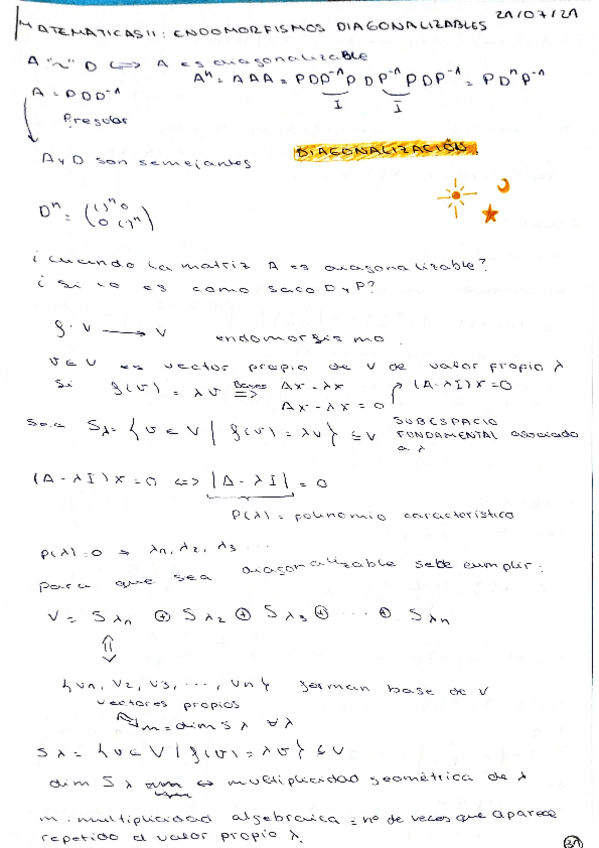 MATEMATICAS II: ENDOMORFISMOS DIAGONALIZABLES 21/07/21
A "~" D ⟺ A es diagonalizable
Aⁿ = AAA = PDP⁻¹PDP⁻¹PDP⁻¹ = PDⁿP⁻¹
A = PDP⁻¹ I I
P regular
A y D son semejantes
DIAGONALIZACIÓN.
Dⁿ = (( )ⁿ 0
0 ( )ⁿ)
¿Cuando la matriz A es diagonalizable?
¿Si lo es como saco D y P?
f: V → V endomorfismo.
v ∈ V es vector propio de V de valor propio λ
si f(v) = λv Bases ⟹ Ax = λx (A-λI)x=0
Ax - λx = 0
Sea Sλ = {v ∈ V | f(v) = λv} ≤ V SUBESPACIO
FUNDAMENTAL asociado
a λ
(A-λI)x = 0 ⟺ |A-λI| = 0
P(λ) = polinomio característico
P(λ)=0 → λ₁, λ₂, λ₃ ...
Para que sea diagonalizable se debe cumplir:
V = Sλ₁ ⊕ Sλ₂ ⊕ Sλ₃ ⊕ ... ⊕ Sλn
⇕
{v₁, v₂, v₃, ..., vn} forman base de V
vectores propios
m = dim Sλ ∀λ
Sλ = {v ∈ V / f(v) = λv} ≤ V
dim Sλ ⟺ multiplicidad geométrica de λ
m: multiplicidad algebraica = nº de veces que aparece
repetido el valor propio λ.